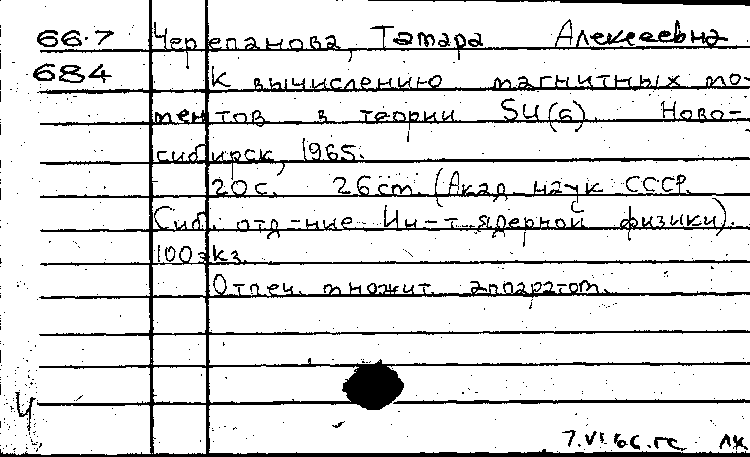 66.7 Черепанова, Тамара Алексеевна
684 К вычислению магнитных мо-
ментов в теории SU(6). Ново-
сибирск, 1965.
20 с. 26 см. (Акад. наук СССР.
Сиб. отд-ние. Ин-т ядерной физики).
100 экз.
Отпеч. множит. аппаратом.
Ч